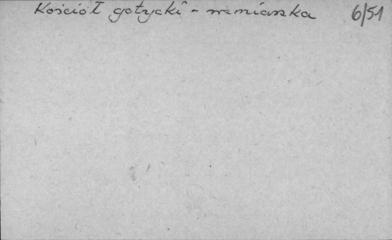 Kościół gotycki - wzmianka 6/51